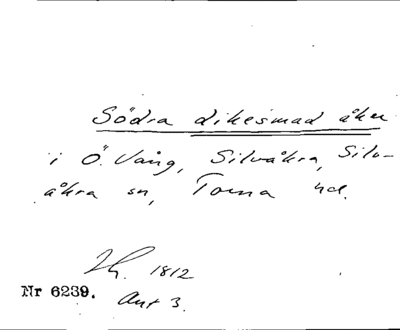 Södra dikesmad åker
i Ö. Vång, Silvåkra, Silv-
åkra sn, Torna hd.
1812
Nr 6239. Akt 3.